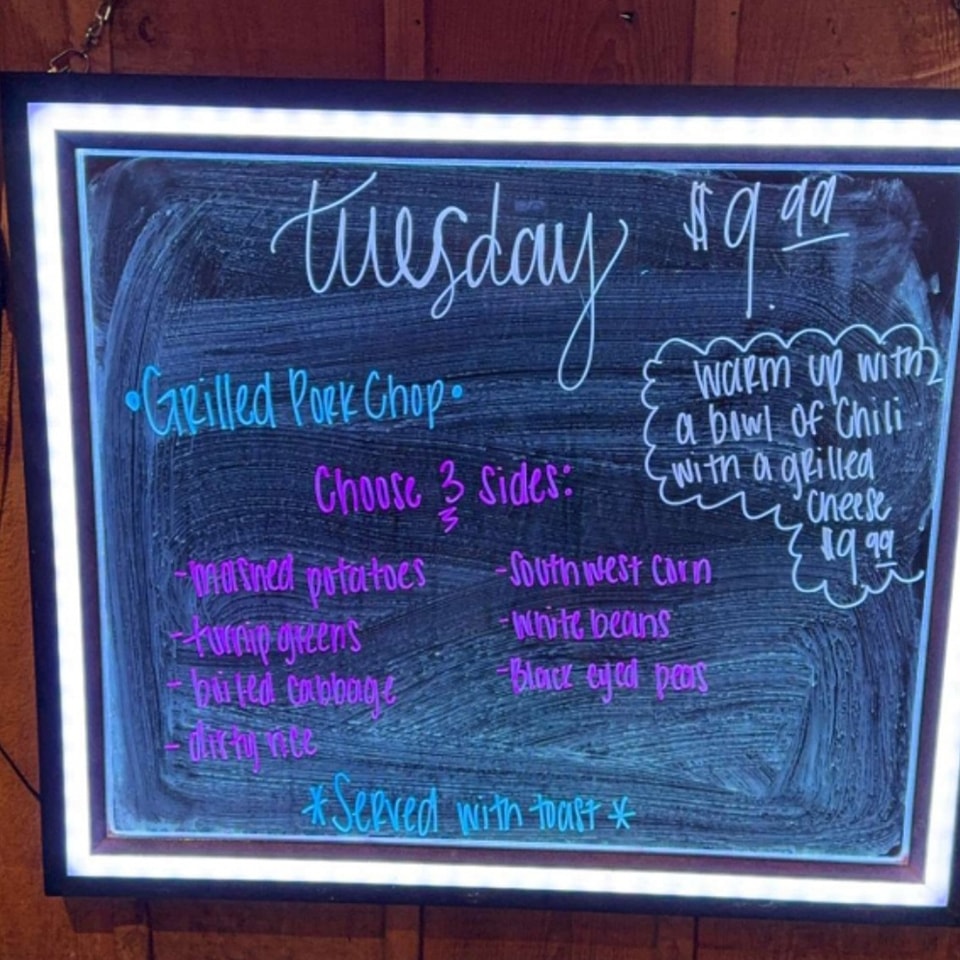 Tuesday $9.99
•Grilled Pork Chop•
Choose 3 sides:
-mashed potatoes
-turnip greens
-boiled cabbage
-dirty rice
-Southwest corn
-White beans
-Black eyed peas
*Served with toast*
Warm up with
a bowl of Chili
with a grilled
cheese
$9.99